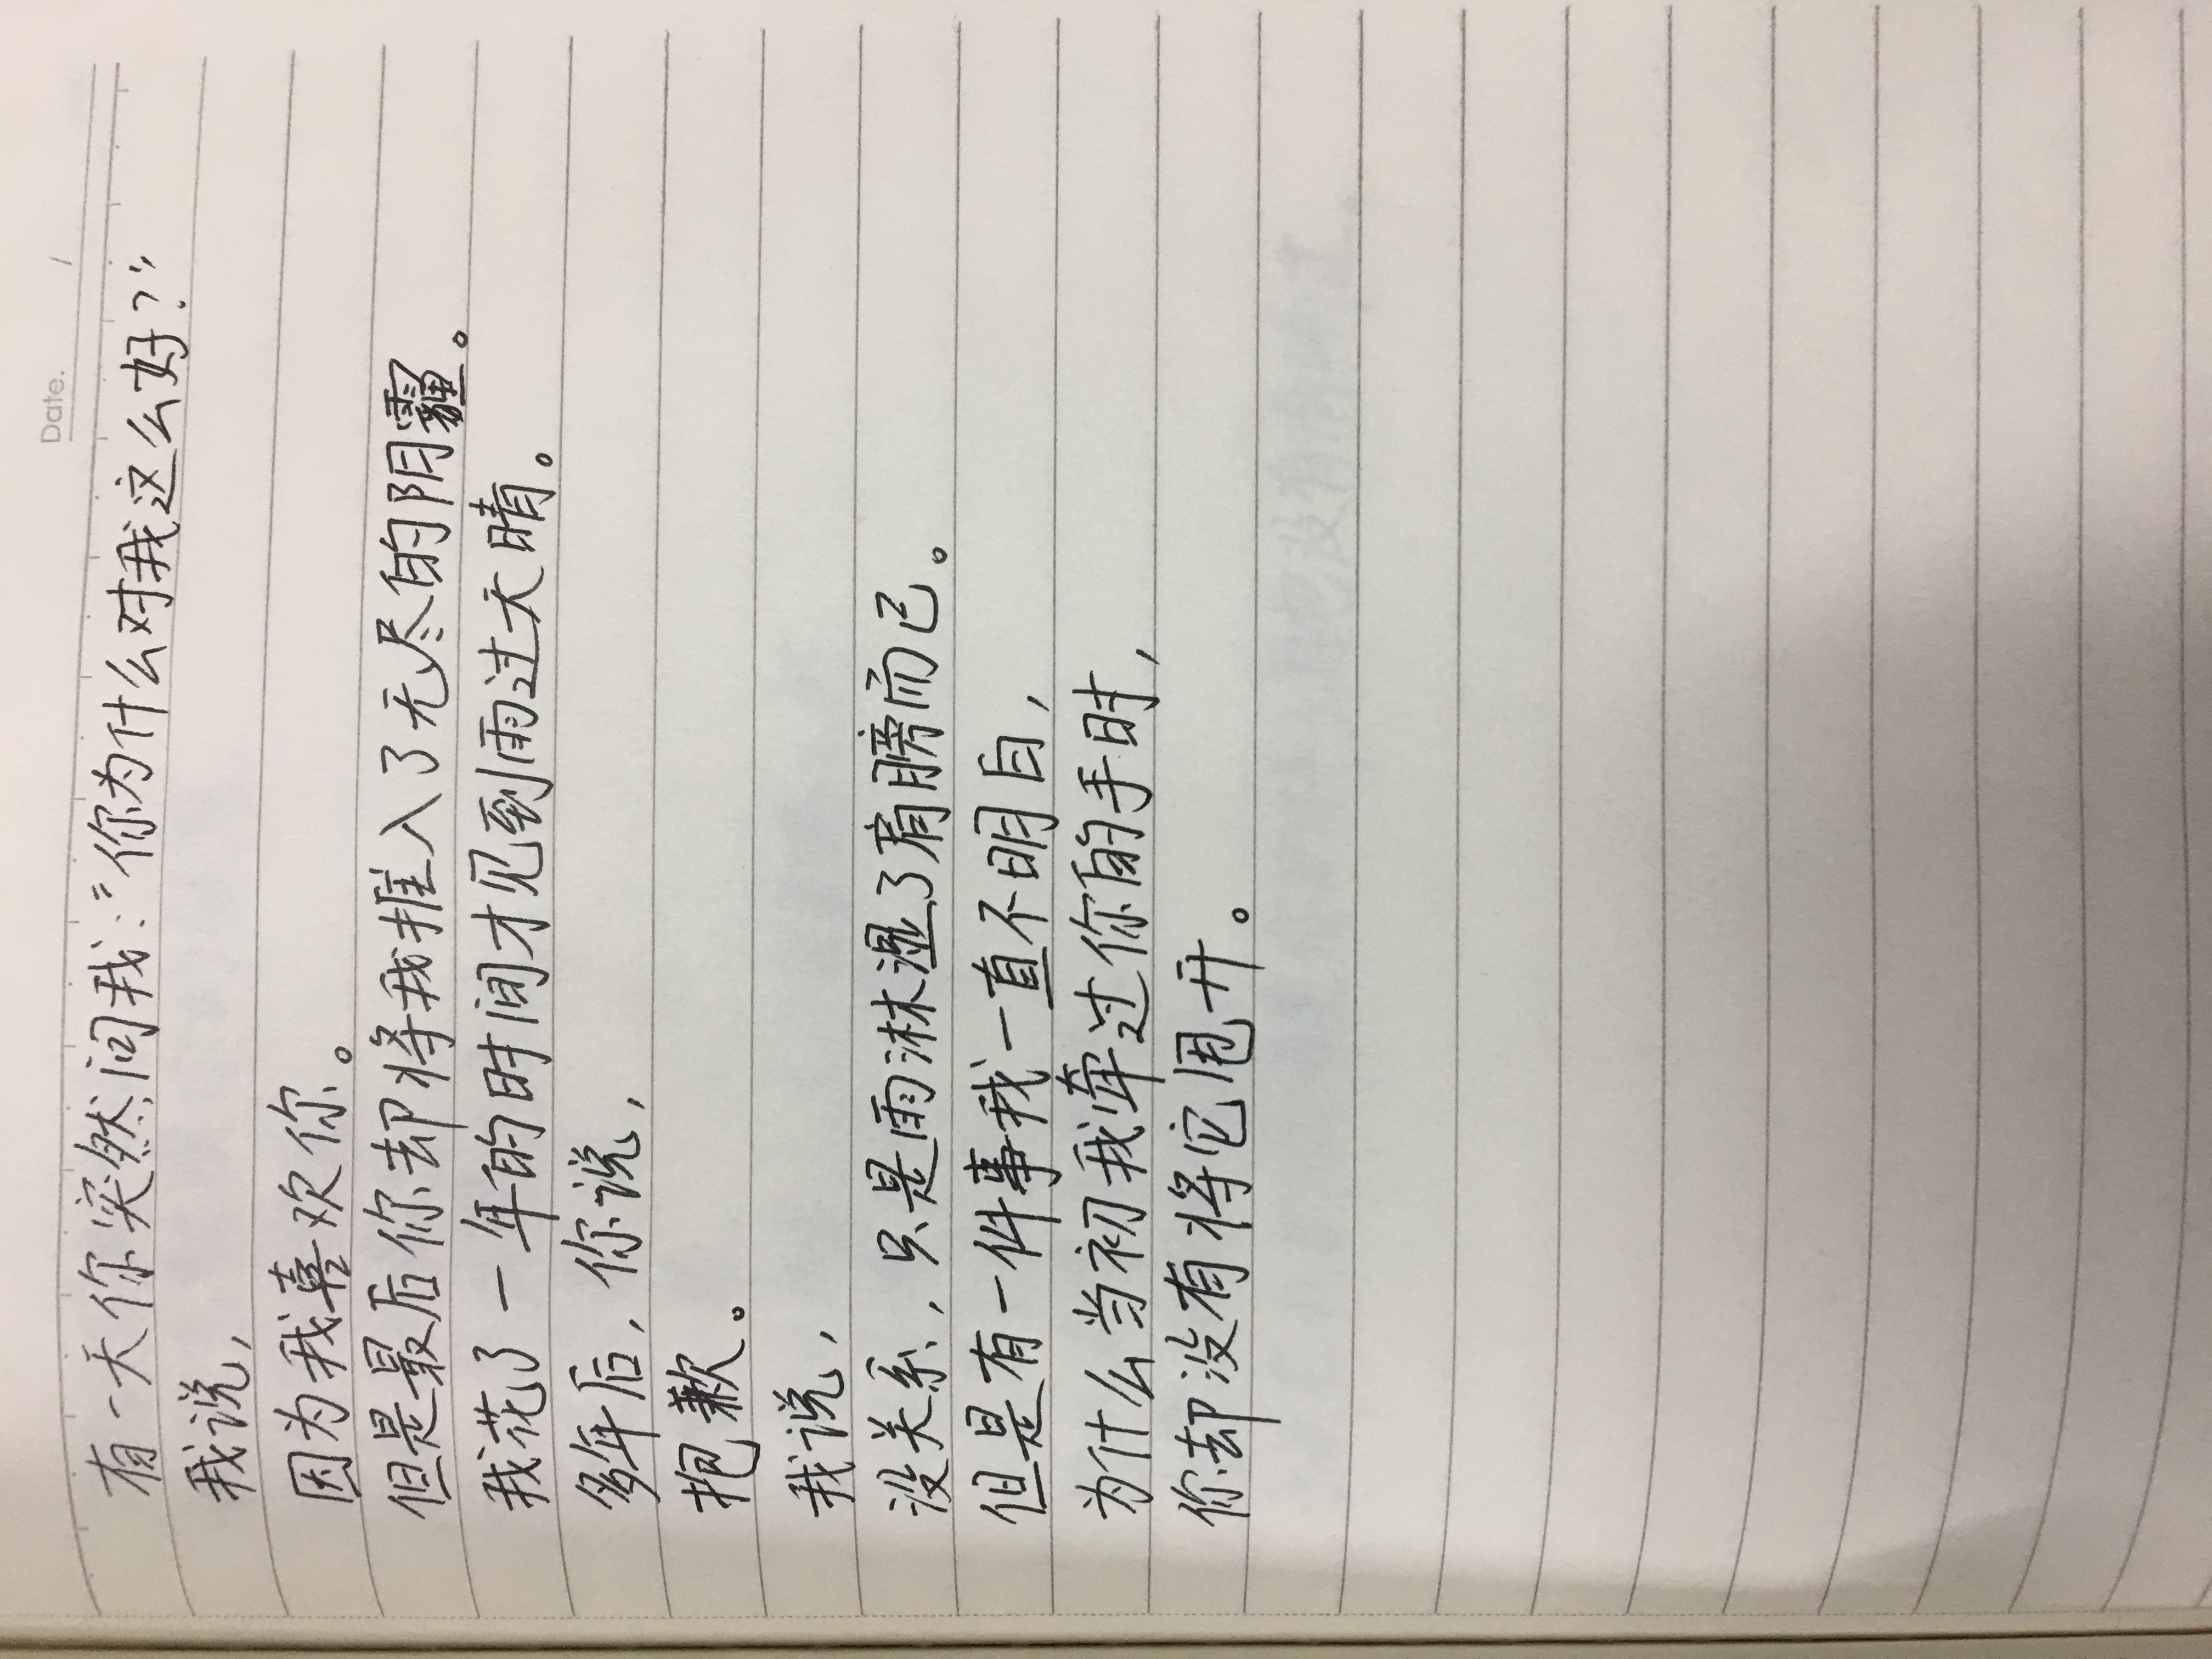 Date. /
有一天你突然问我:“你为什么对我这么好?”
我说,
因为我喜欢你。
但是最后你却将我推入了无尽的阴霾。
我花了一年的时间才见到雨过天晴。
多年后,你说,
抱歉。
我说,
没关系,只是雨淋湿了肩膀而已。
但是有一件事我一直不明白,
为什么当初我牵过你的手时,
你却没有将它甩开。